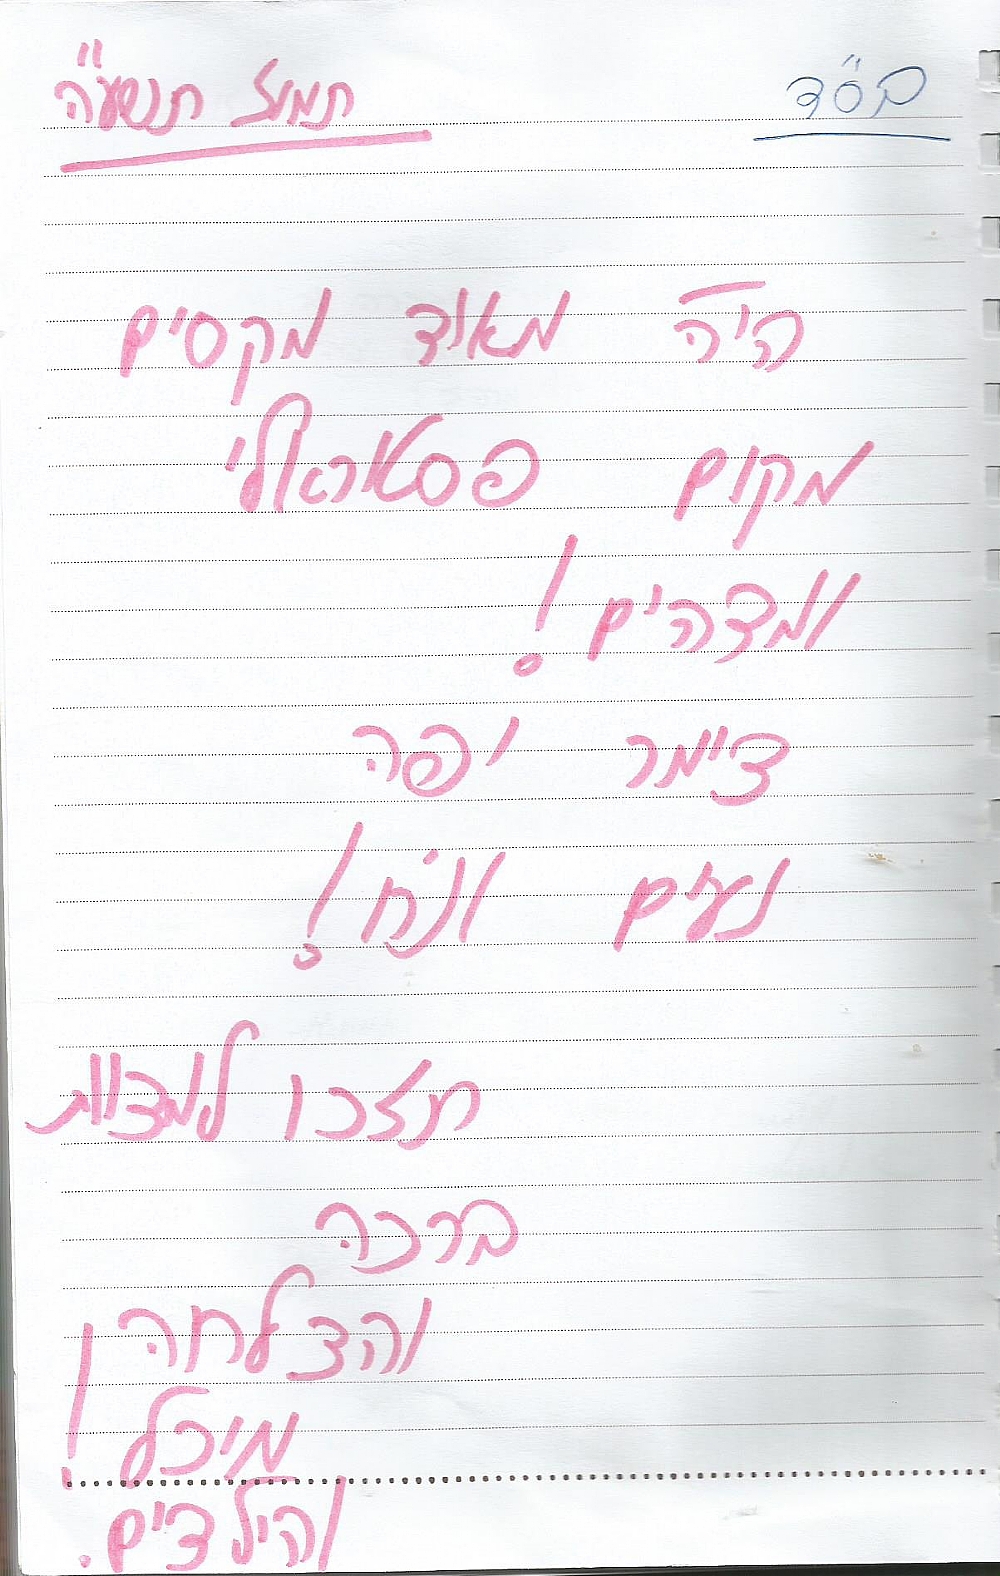 בס"ד
תמוז תשע"ה
היה מאוד מקסים
מקום פסטוראלי
ומדהים!
צימר יפה
נעים ונח!
תזכו למצוות
ברכה
והצלחה!
מיכל
והילדים.